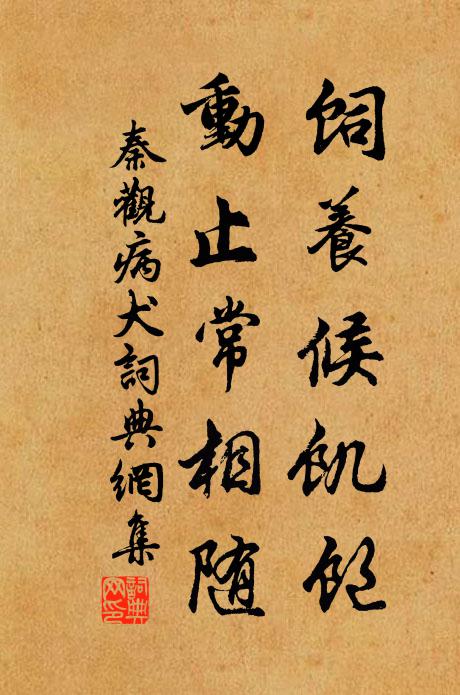 飼養候飢飽
動止常相随
秦觀病犬詞典網集
詞典网印